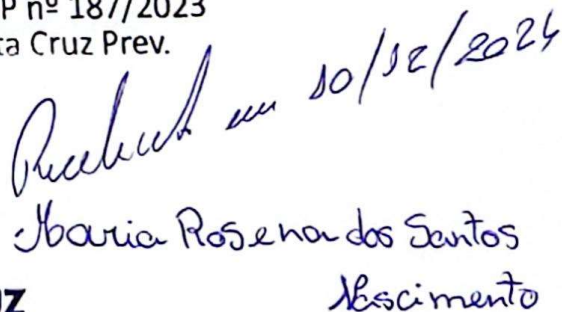 P nº 187/2023
ta Cruz Prev.
Recebido em 10/12/2024
Maria Rosena dos Santos
Nascimento
uz